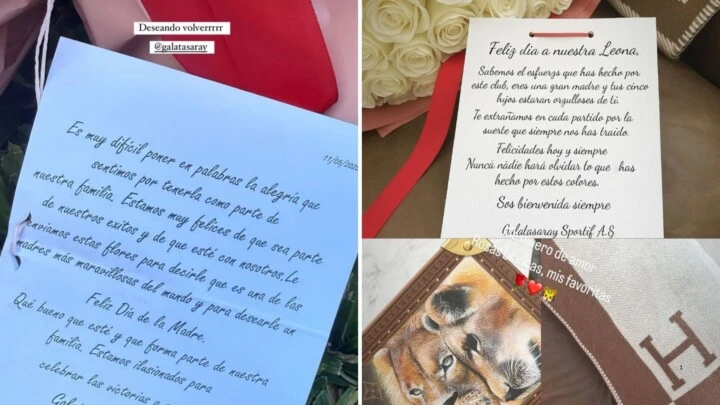 Deseando volverrrrr
@galatasaray
11/05/202
Es muy difícil poner en palabras la alegría que
sentimos por tenerla como parte de
nuestra familia. Estamos muy felices de que sea parte
de nuestros exitos y de que esté con nosotros.Le
enviamos estas flores para decirle que es una de las
madres más maravillosas del mundo y para desearle un
Feliz Día de la Madre.
Qué bueno que esté y que forma parte de nuestra
familia. Estamos ilusionados para
celebrar las victorias
Feliz dia a nuestra Leona,
Sabemos el esfuerzs que has hecho por
este club, eres una gran madre y tus cinco
hijos estaran orgullosos de ti.
Te extrañamos en cada partido por la
suerte que siempre nos has traido.
Felicidades hoy y siempre
Nunca nádie hará olvidar lo que has
hecho por estos colores.
Sos bienvenida siempre
Galatasaray Sportif A.S
ero de amor
Rosas blancas, mis favoritas
H